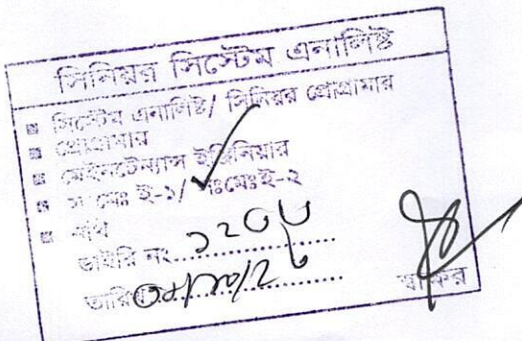 সিনিয়র সিস্টেম এনালিষ্ট
সিস্টেম এনালিষ্ট/ সিনিয়র প্রোগ্রামার
প্রোগ্রামার
মেইনটেন্যান্স ইঞ্জিনিয়ার
সঃমেঃ ই-১/ সঃমেঃই-২
নথি
ডাইরি নং
তারিখ
স্বাক্ষর